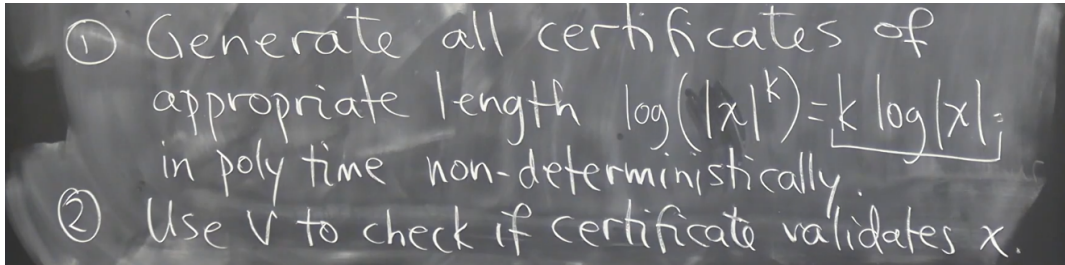 ① Generate all certificates of
appropriate length log(|x|^k) = k log|x|.
in poly time non-deterministically.
② Use V to check if certificate validates x.